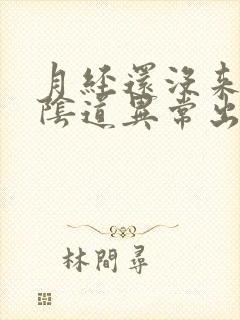 月經還沒来
陰道異常出
林間尋